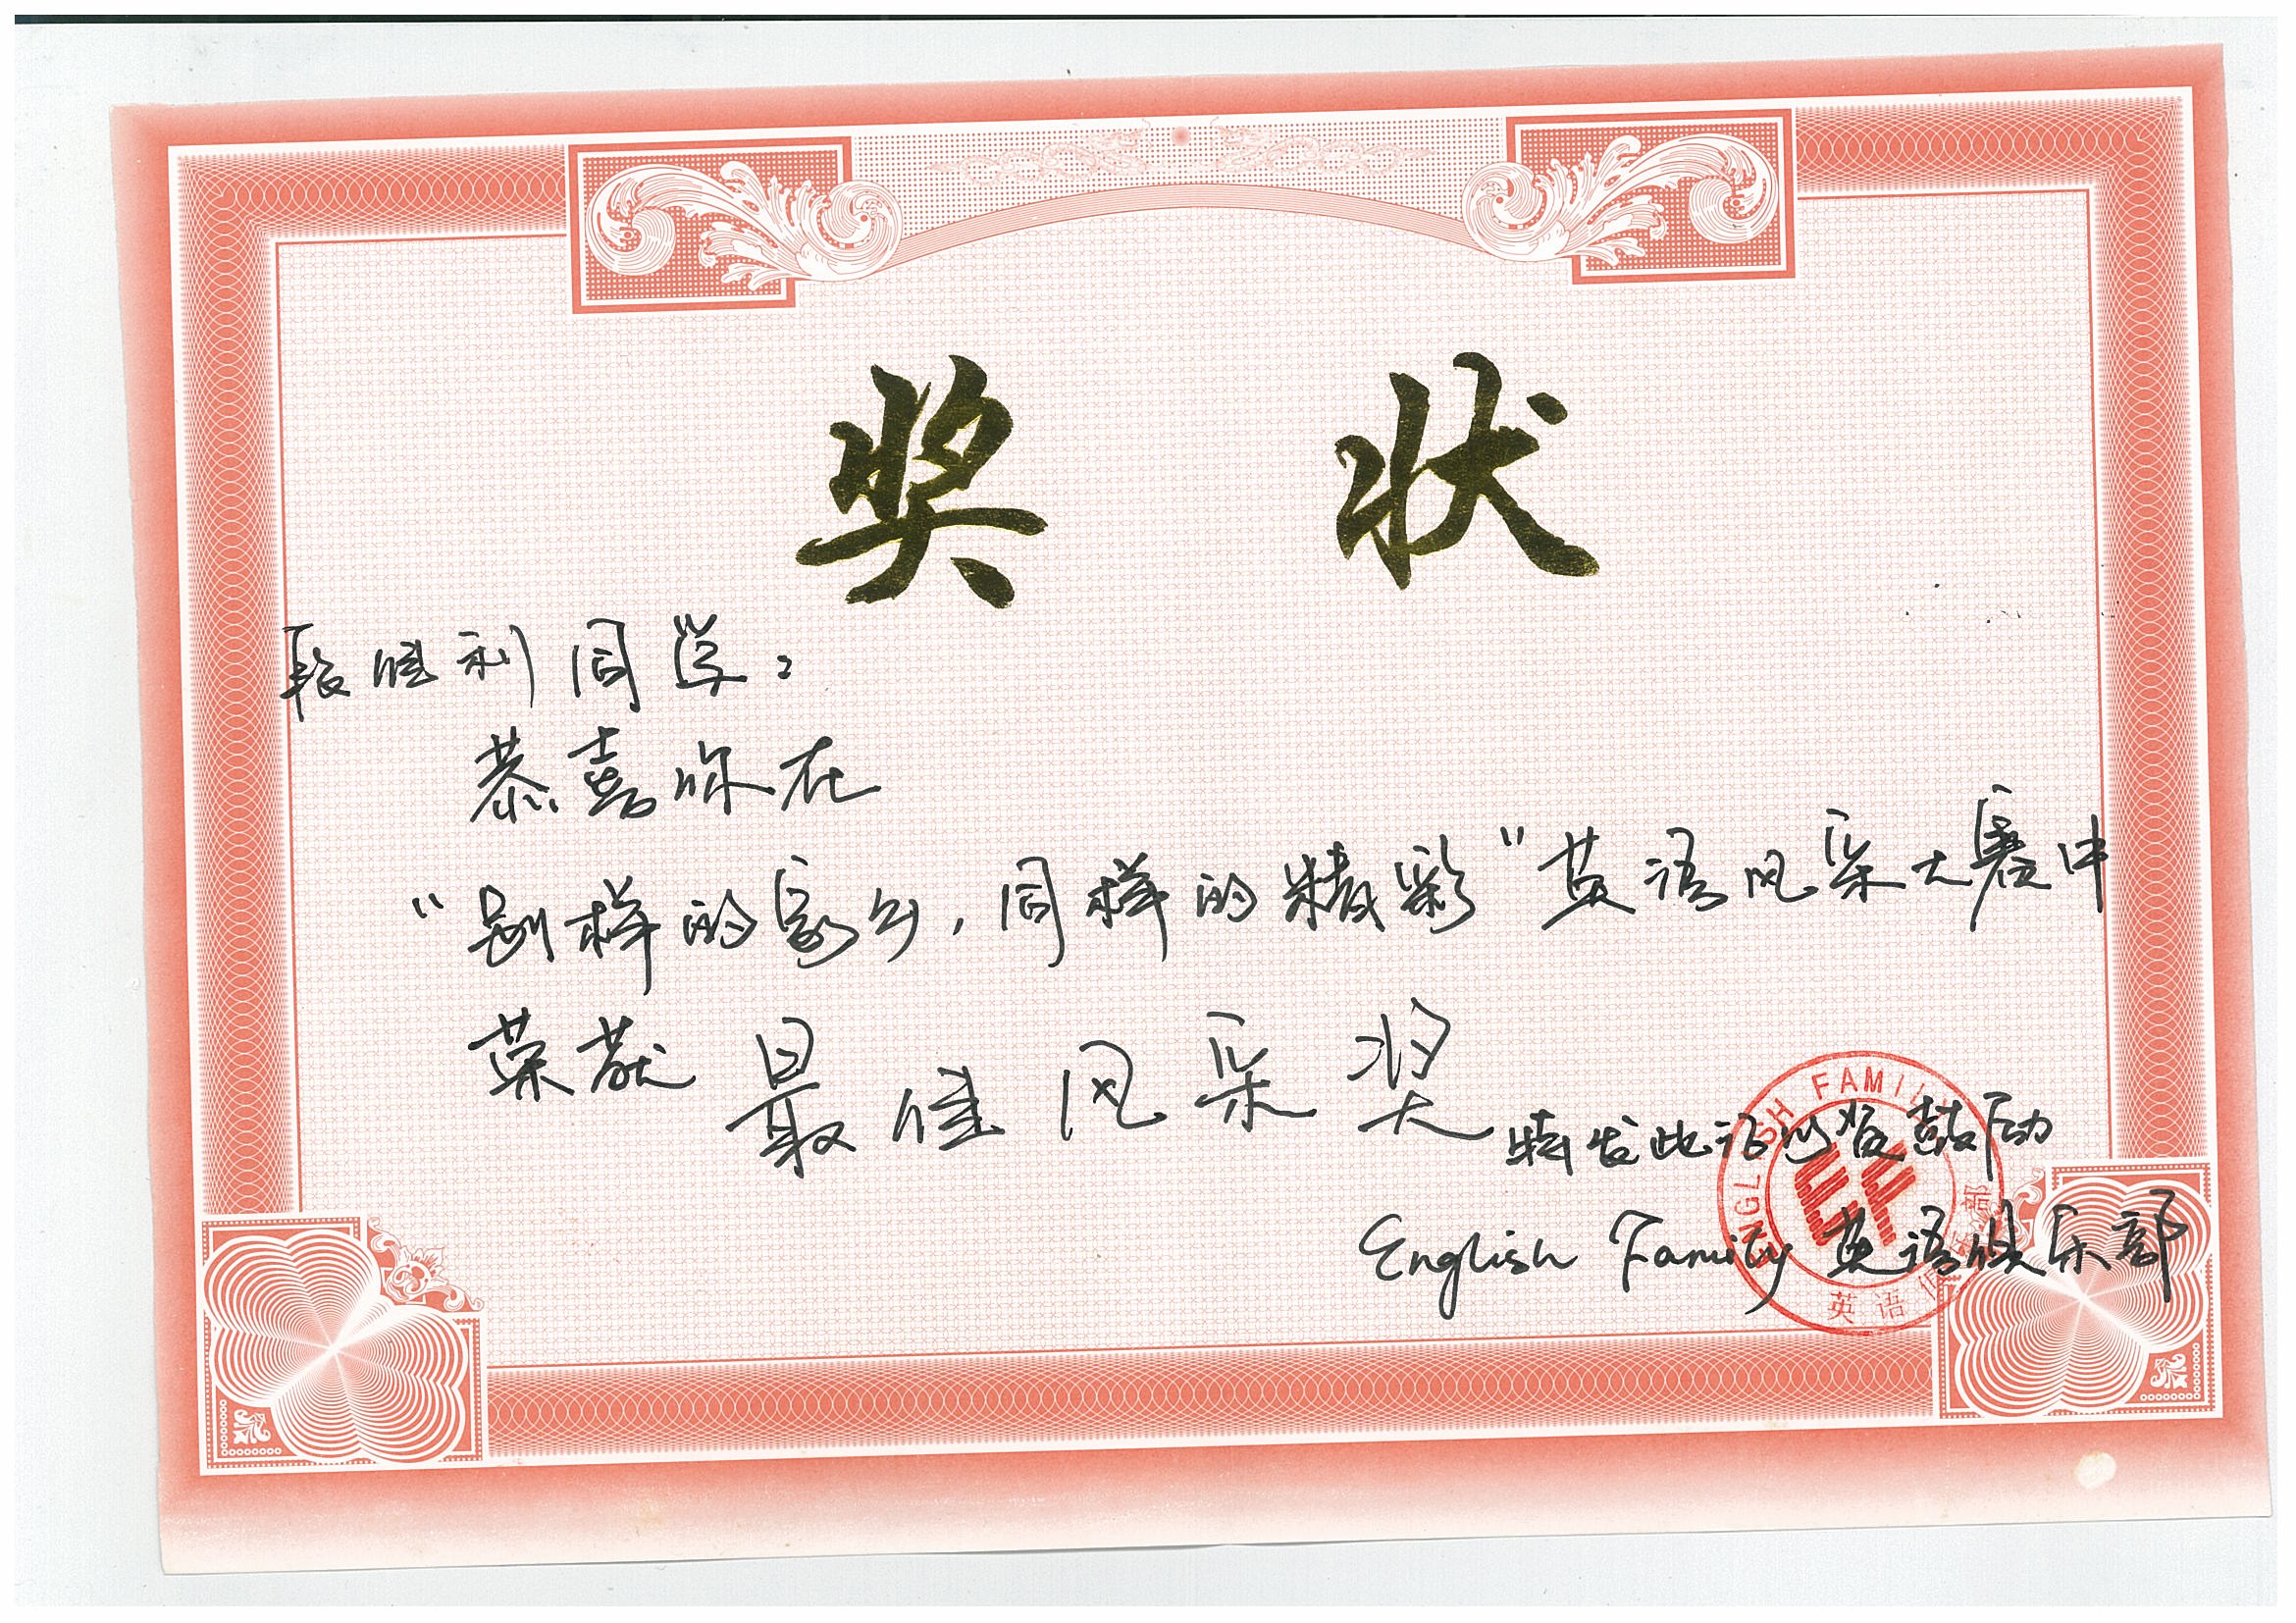 奖 状
段胜利同学:
恭喜你在
“别样的家乡,同样的精彩”英语风采大赛中
荣获 最佳风采奖
特发此证以资鼓励
English Family 英语俱乐部
ENGLISH FAMILY
EF
英语俱乐部